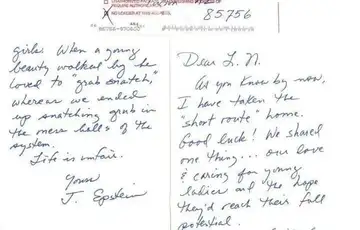 85756
girls. When a young
beauty walked by he
loved to "grab snatch,"
whereas we ended
up snatching grub in
the mess halls of the
system.
Life is unfair.
Yours
J. Epstein
Dear L. N.
As you know by now,
I have taken the
"short route" home.
Good luck! We shared
one thing... our love
& caring for young
ladies and the hope
they'd reach their full
potential.